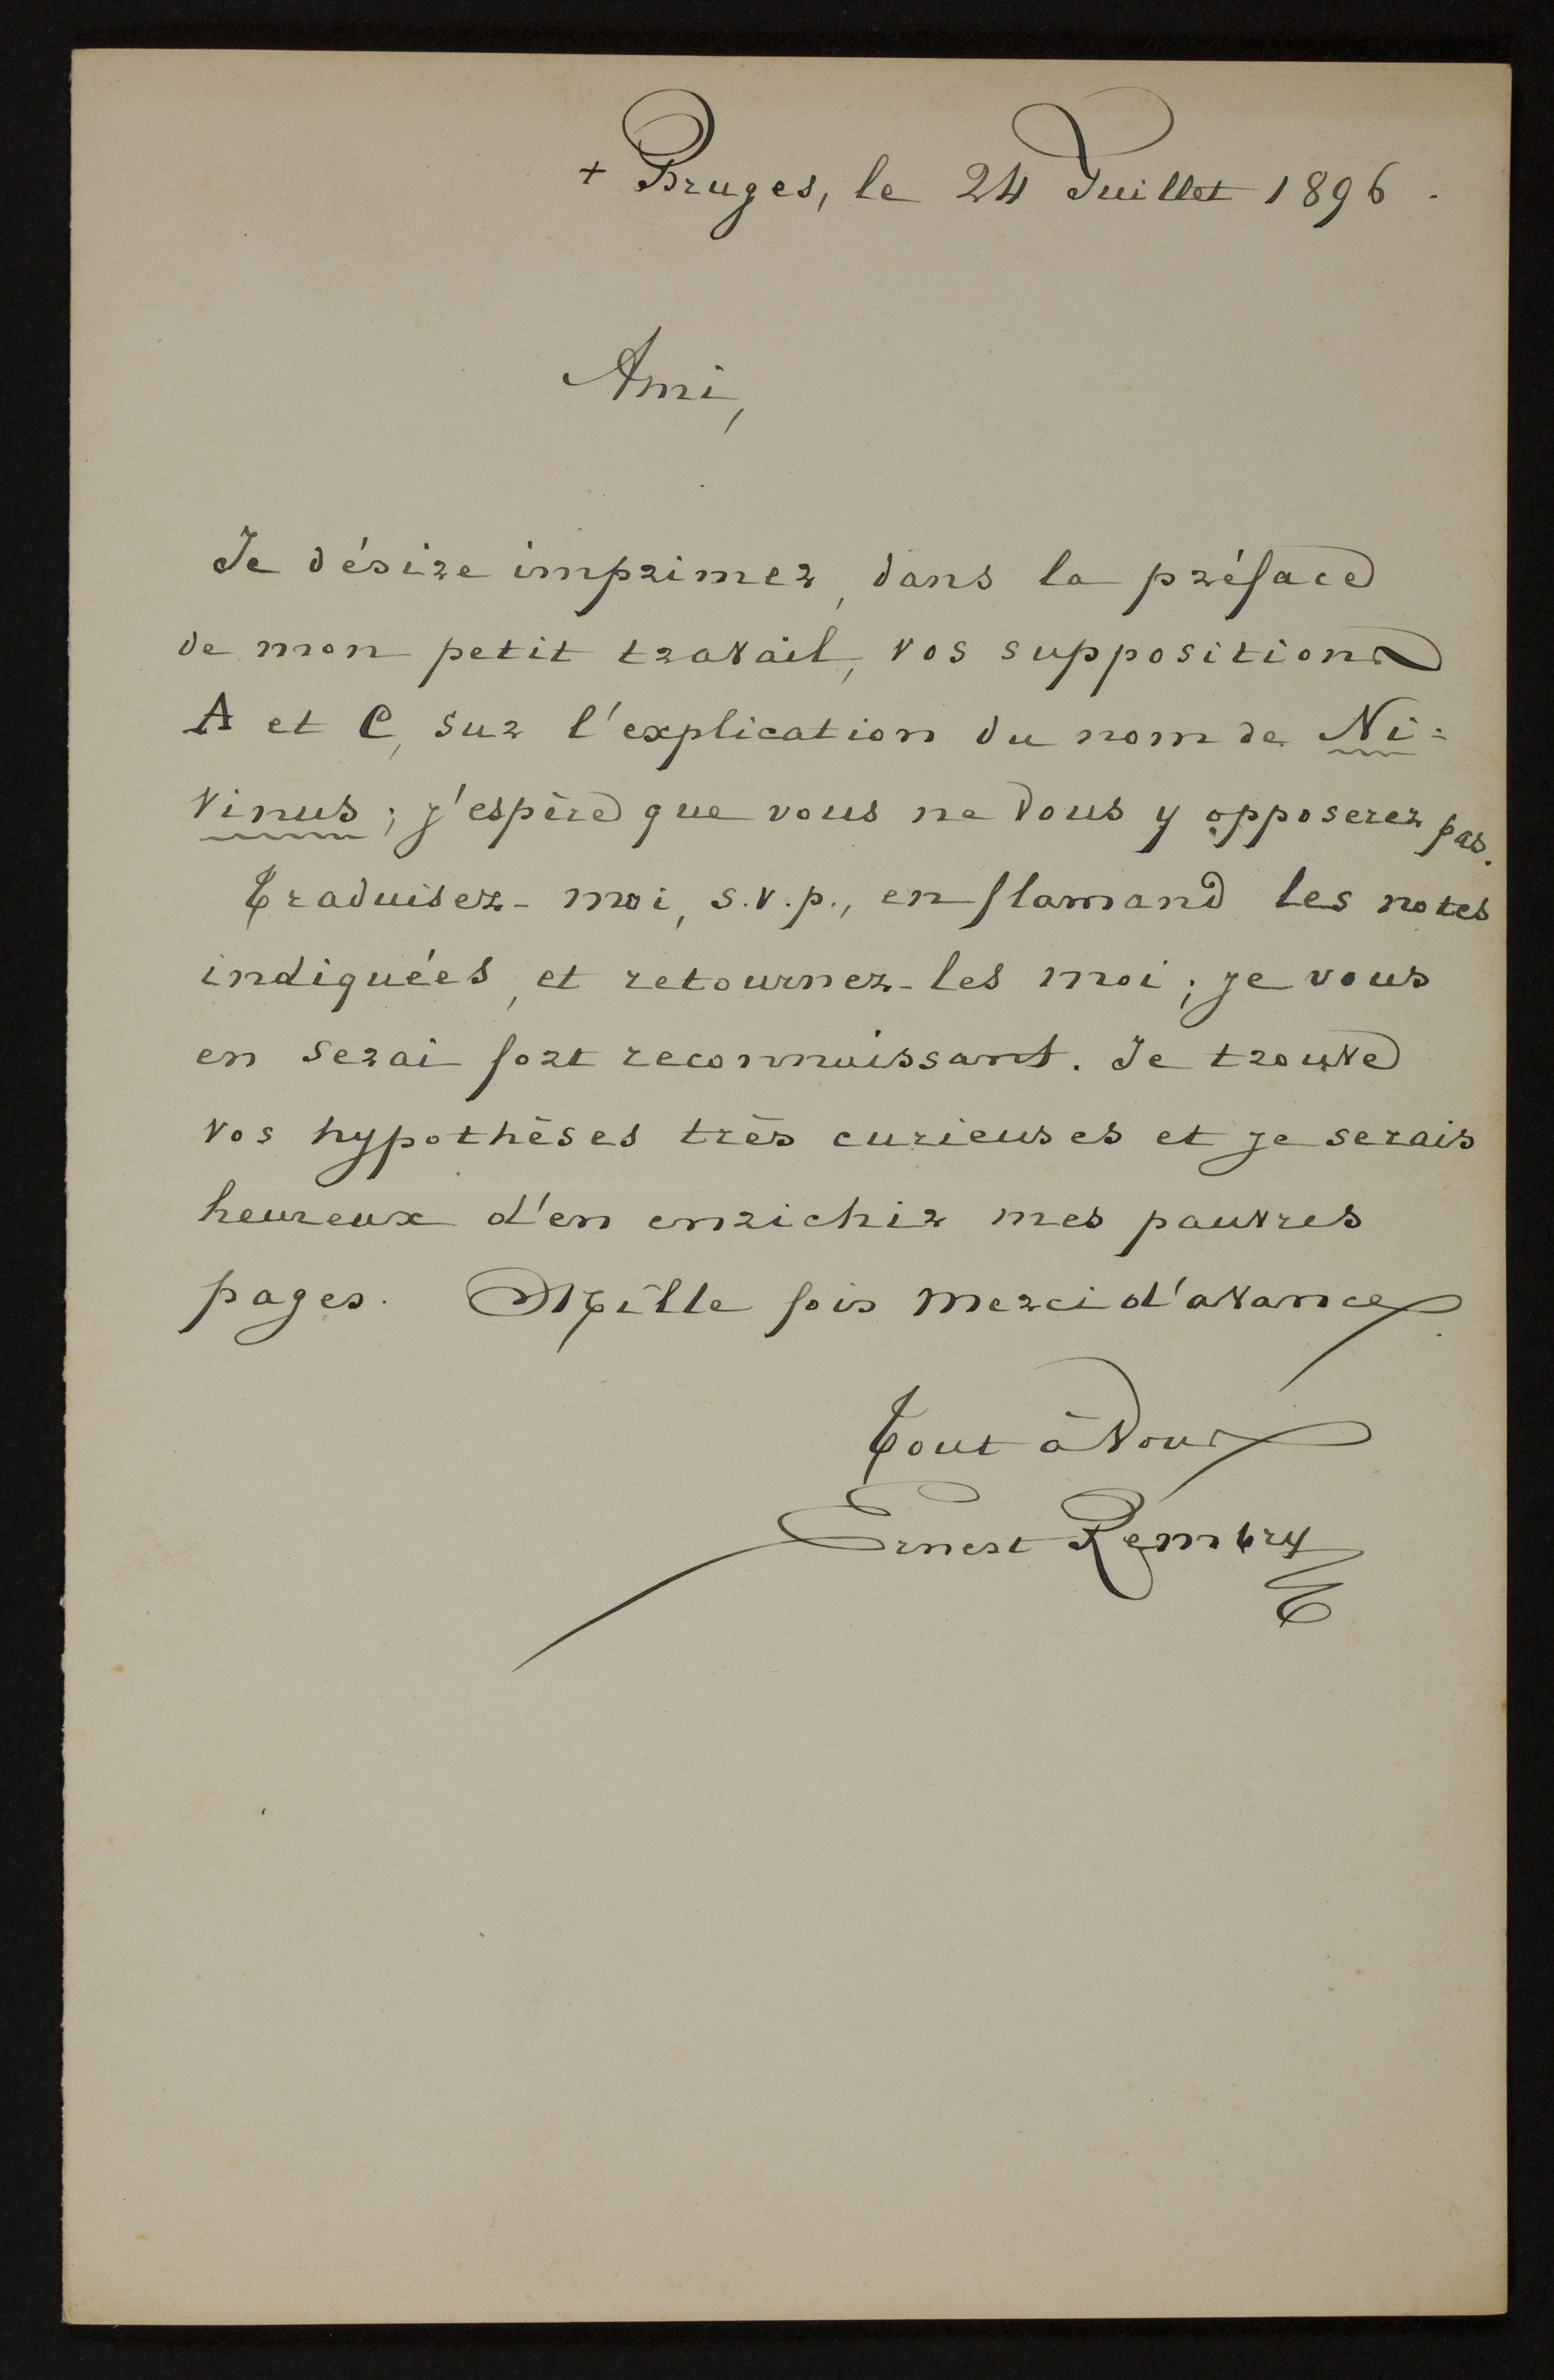 + Bruges, le 24 Juillet 1896.
Ami,
Je désire imprimer, dans la préface
de mon petit travail, vos suppositions
A et C, sur l'explication du nom de Ni=
vinus; j'espère que vous ne vous y opposerez pas.
Traduisez-moi, s.v.p., en flamand les notes
indiquées, et retournez-les moi; je vous
en serai fort reconnaissant. Je trouve
vos hypothèses très curieuses et je serais
heureux d'en enrichir mes pauvres
pages. Mille fois merci d'avance.
Tout à vous
Ernest Rembry